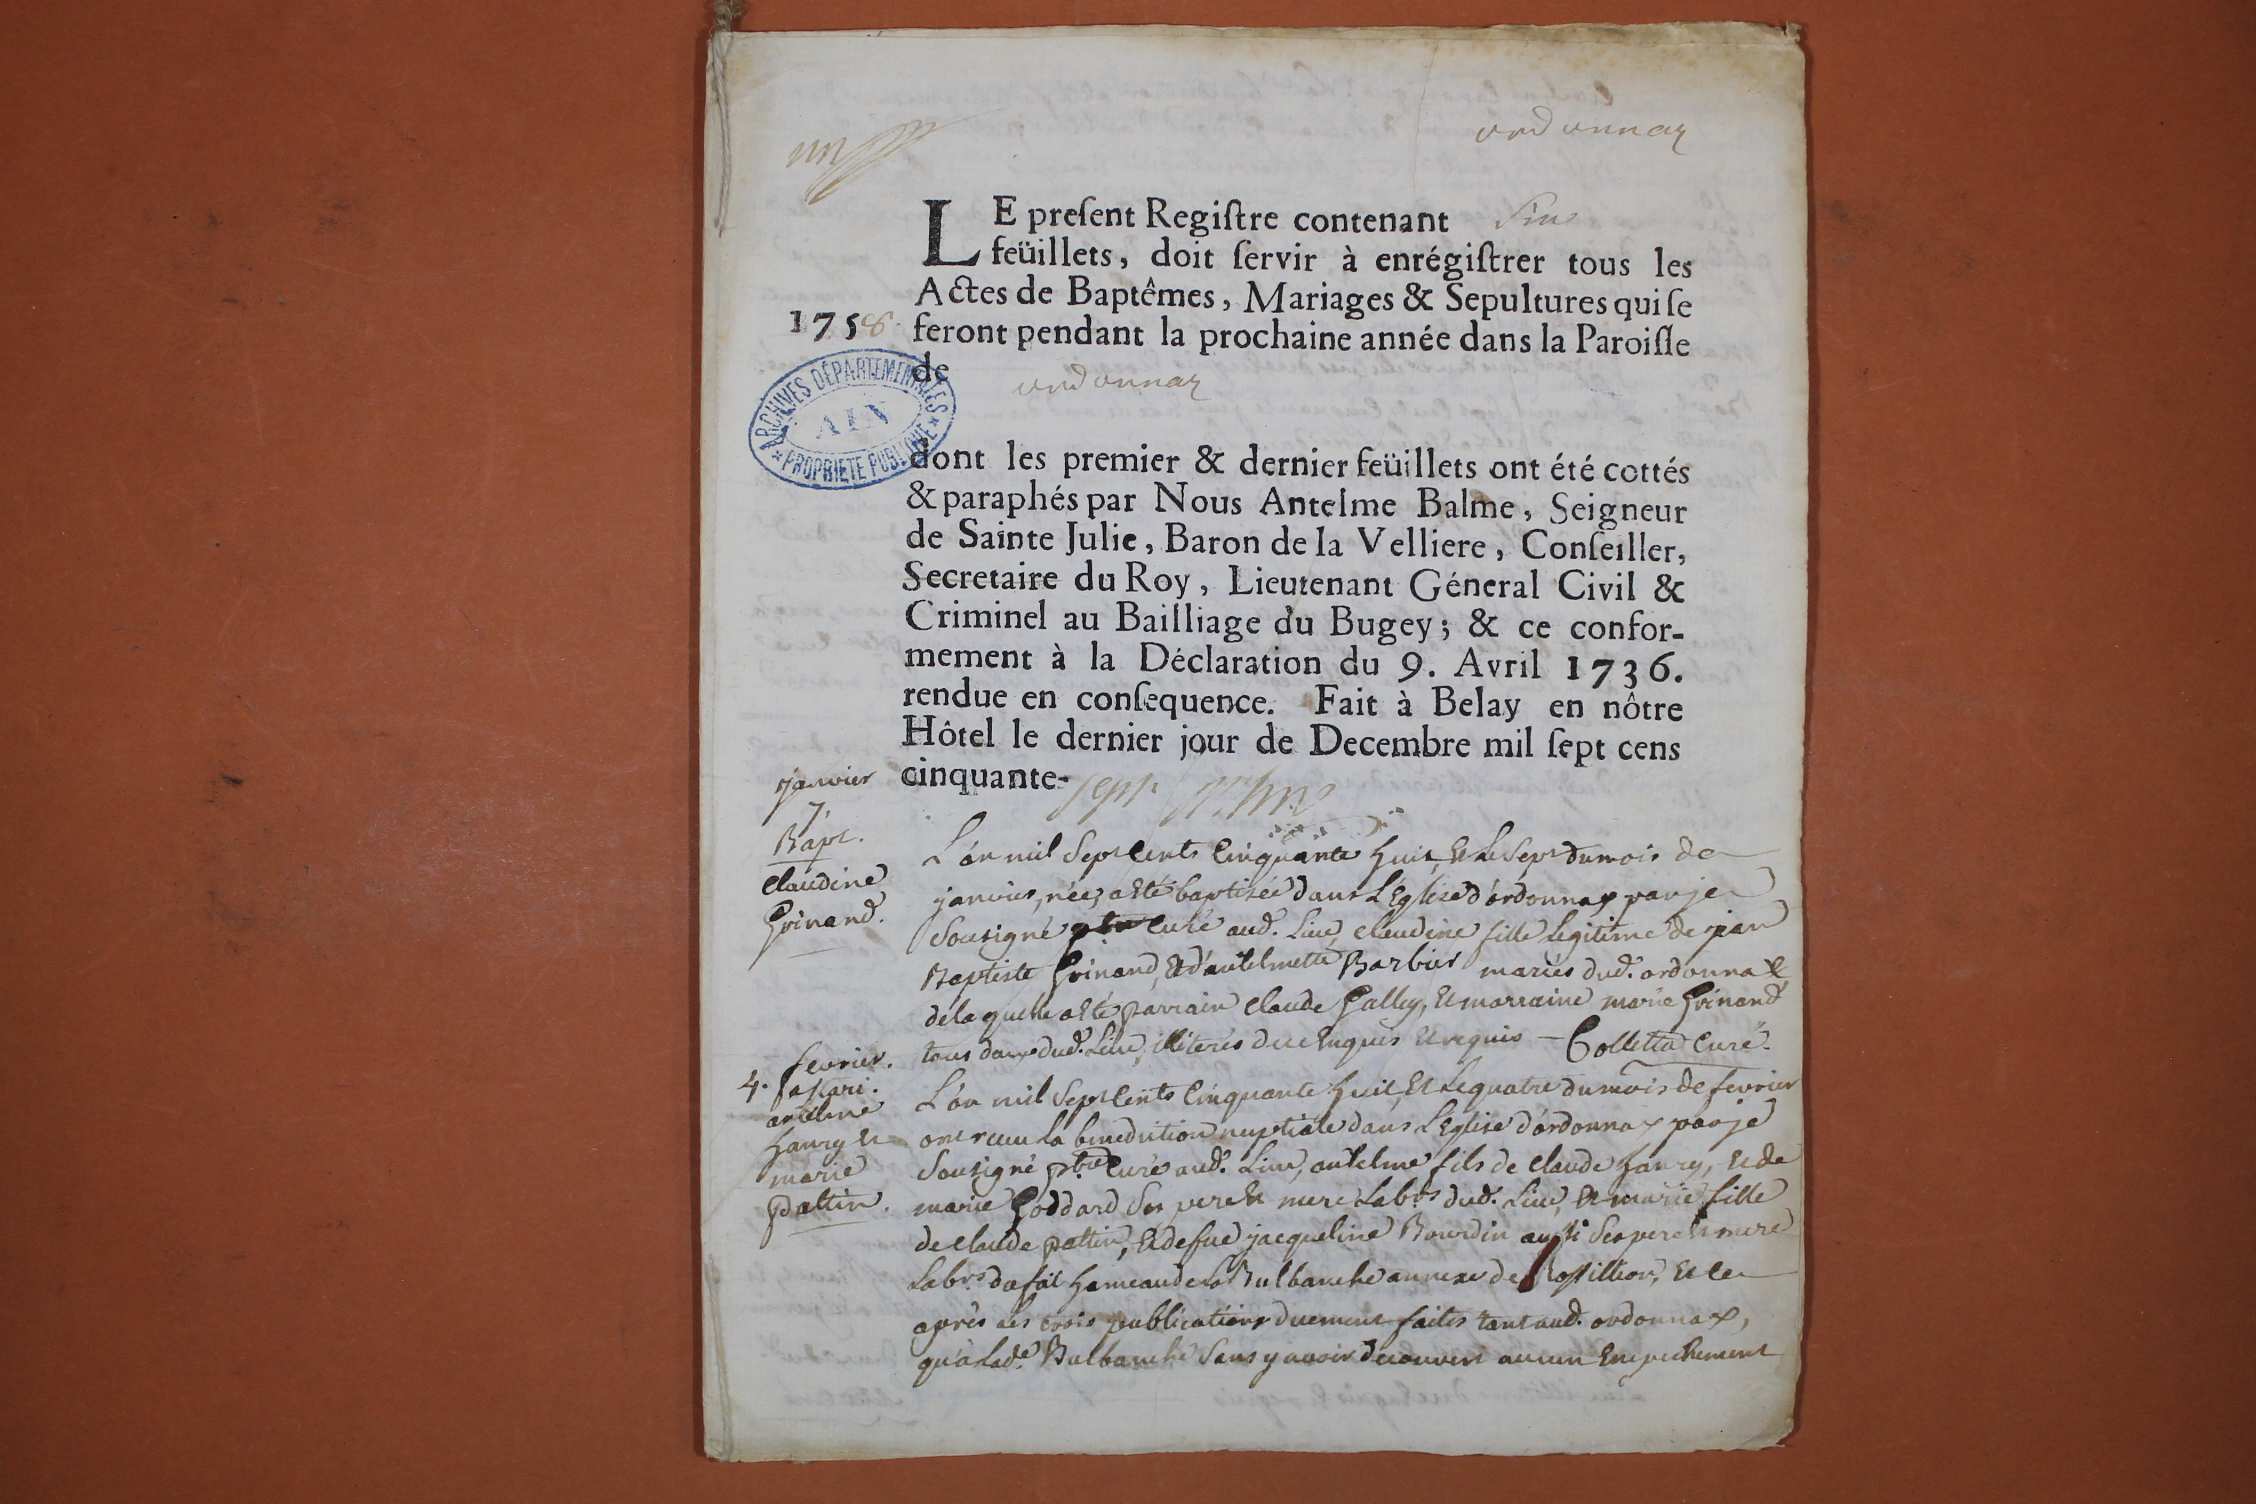 ordonnax
LE preſent Regiſtre contenant Six
feüillets, doit ſervir à enrégiſtrer tous les
Actes de Baptêmes, Mariages & Sepultures qui ſe
1758. feront pendant la prochaine année dans la Paroiſſe
de ordonnax
ARCHIVES DÉPARTEMENTALES
AIN
* PROPRIETE PUBLIQUE *
dont les premier & dernier feüillets ont été cottés
& paraphés par Nous Antelme Balme, Seigneur
de Sainte Julie, Baron de la Velliere, Conſeiller,
Secretaire du Roy, Lieutenant Géneral Civil &
Criminel au Bailliage du Bugey; & ce confor-
mement à la Déclaration du 9. Avril 1736.
rendue en conſequence. Fait à Belay en nôtre
Hôtel le dernier jour de Decembre mil ſept cens
cinquante- sept
janvier
7.
Bapt.
claudine
Grinand.
L'an mil Sept Cents Cinquante Huit, Et Le Sept du mois de
janvier, née, a Eté baptisée dans L'Eglise d'ordonnax par je
Sousigné Curé aud. Lieu, claudine fille legitime de jean
Baptiste Grinand, Et d'antelmette Barbier mariés dud. ordonnax
de laquelle a Eté parrain claude Galley, Et marraine marie Grinand
tous dud. Lieu, illiterés de ce Enquis Et requis — Colletta Curé.
fevrier.
4. Mari.
antelme
Hanry Et
marie
pattin.
L'an mil Sept Cents Cinquante Huit, Et Le quatre du mois de fevrier
ont recu la benediction nuptiale dans L'Eglise d'ordonnax par je
Sousigné pbre Curé aud. Lieu, antelme fils de claude Hanry, Et de
marie Goddard Ses pere Et mere Labrs dud. Lieu, Et marie fille
de claude pattin, Et de fue jacqueline Bourdin aussi Ses pere Et mere
Labrs hameau de La Bulbanche annexe de Rossillion, Et ce
après Les trois publications duement faites tant aud. ordonnax,
qu'à Lade. Bulbanche Sans y avoir decouvert aucun Empechement